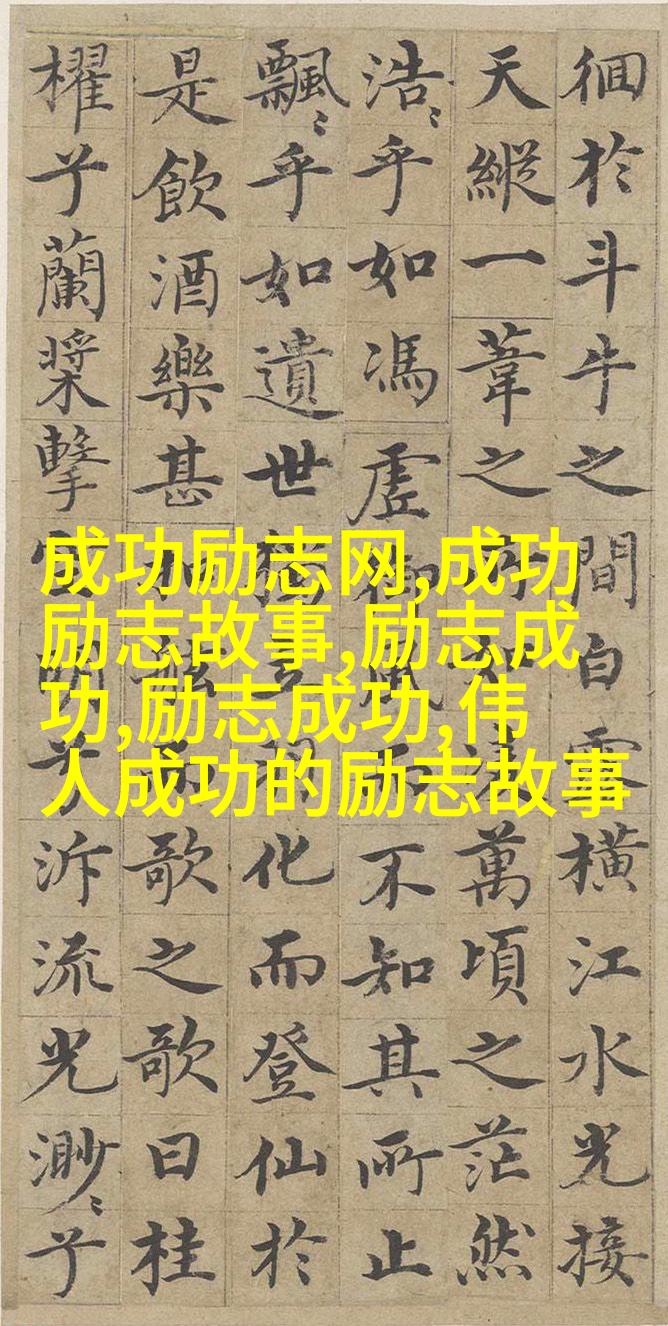 徊於斗牛之間白露橫江水光接
天縱一葦之所如凌萬頃之茫然
浩〻乎如馮虛御風而不知其所止
飄〻乎如遺世獨立羽化而登仙於
是飲酒樂甚扣舷而歌之歌曰桂
櫂兮蘭槳擊空明兮泝流光渺〻兮
成功励志网,成功
励志故事,励志成
功,励志成功,伟
人成功的励志故事